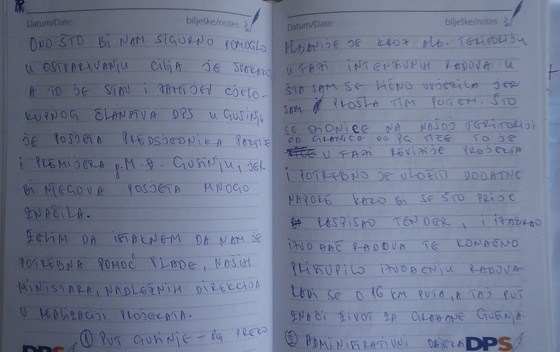 Datum/Date: bilješke/notes
ONO ŠTO BI NAM SIGURNO POMOGLO
U OSTVARIVANJU CILJA JE SVAKAKO
A TO JE STAV I ZAHTJEV CJELO-
KUPNOG ČLANSTVA DPS U GUSINJU
JE POSJETA PREDSJEDNIKA PARTIJE
I PREMIJERA g. M. Đ. GUSINJU, JER
BI NJEGOVA POSJETA MNOGO
ZNAČILA.
ŽELIM DA ISTAKNEM DA NAM JE
POTREBNA POMOĆ VLADE, NAŠIH
MINISTARA, NADLEŽNIH DIREKCIJA
U REALIZACIJI PROJEKATA.
① PUT GUSINJE - PG PREKO
DPS
Datum/Date: bilješke/notes
ALBANIJE JE KROZ ALB. TERITORIJU
U FAZI INTENZIVNIH RADOVA U
ŠTA SAM SE LIČNO UVJERILA JER
SAM PROŠLA TIM PUTEM. ŠTO
SE DIONICE NA NAŠOJ TERITORIJI
OD GRANICE DO PG TIČE TO JE
U FAZI REVIZIJE PROJEKTA
I POTREBNO JE ULOŽITI DODATNE
NAPORE KAKO BI SE ŠTO PRIJE
RASPISAO TENDER, I IZABRAO
IZVOĐAČ RADOVA TE KONAČNO
PRISTUPILO IZVOĐENJU RADOVA
RADI SE O 16 KM PUTA, A TAJ PUT
ZNAČI ŽIVOT ZA GRAĐANE GUSINJA.
② ADMINISTRATIVNI
DPS